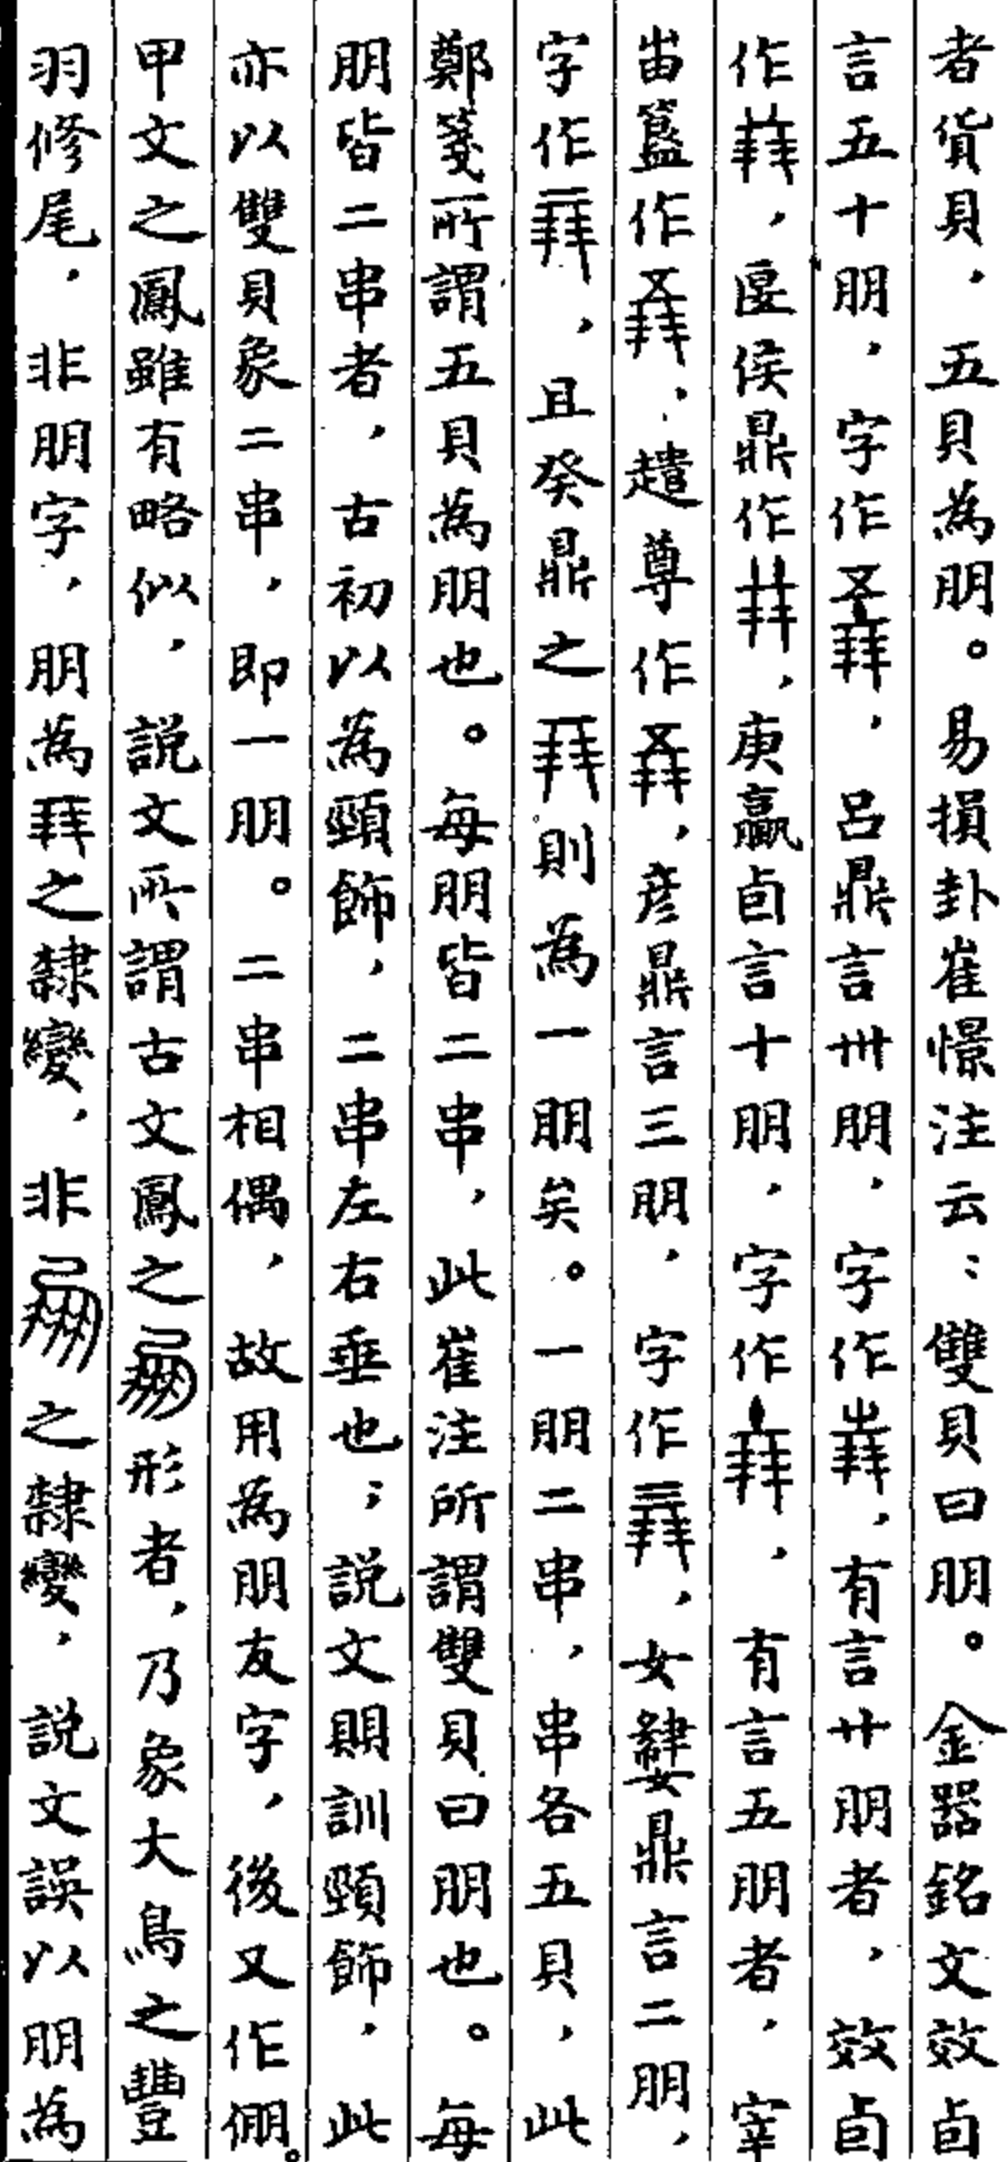 者貨貝，五貝為朋。易損卦崔憬注云：雙貝曰朋。金器銘文效卣
言五十朋，字作，呂鼎言卅朋，字作，有言廿朋者，效卣
作，匽侯鼎作，庚嬴卣言十朋，字作，有言五朋者，宰
甾簋作，趞尊作，彥鼎言三朋，字作，女鼎言二朋，
字作，且癸鼎之則為一朋矣。一朋二串，串各五貝，此
鄭箋所謂五貝為朋也。每朋皆二串，此崔注所謂雙貝曰朋也。每
朋皆二串者，古初以為頸飾，二串左右垂也；説文賏訓頸飾，此
亦以雙貝象二串，即一朋。二串相偶，故用為朋友字，後又作倗。
甲文之鳳雖有略似，説文所謂古文鳳之形者，乃象大鳥之豐
羽修尾，非朋字，朋為之隸變，非之隸變，説文誤以朋為